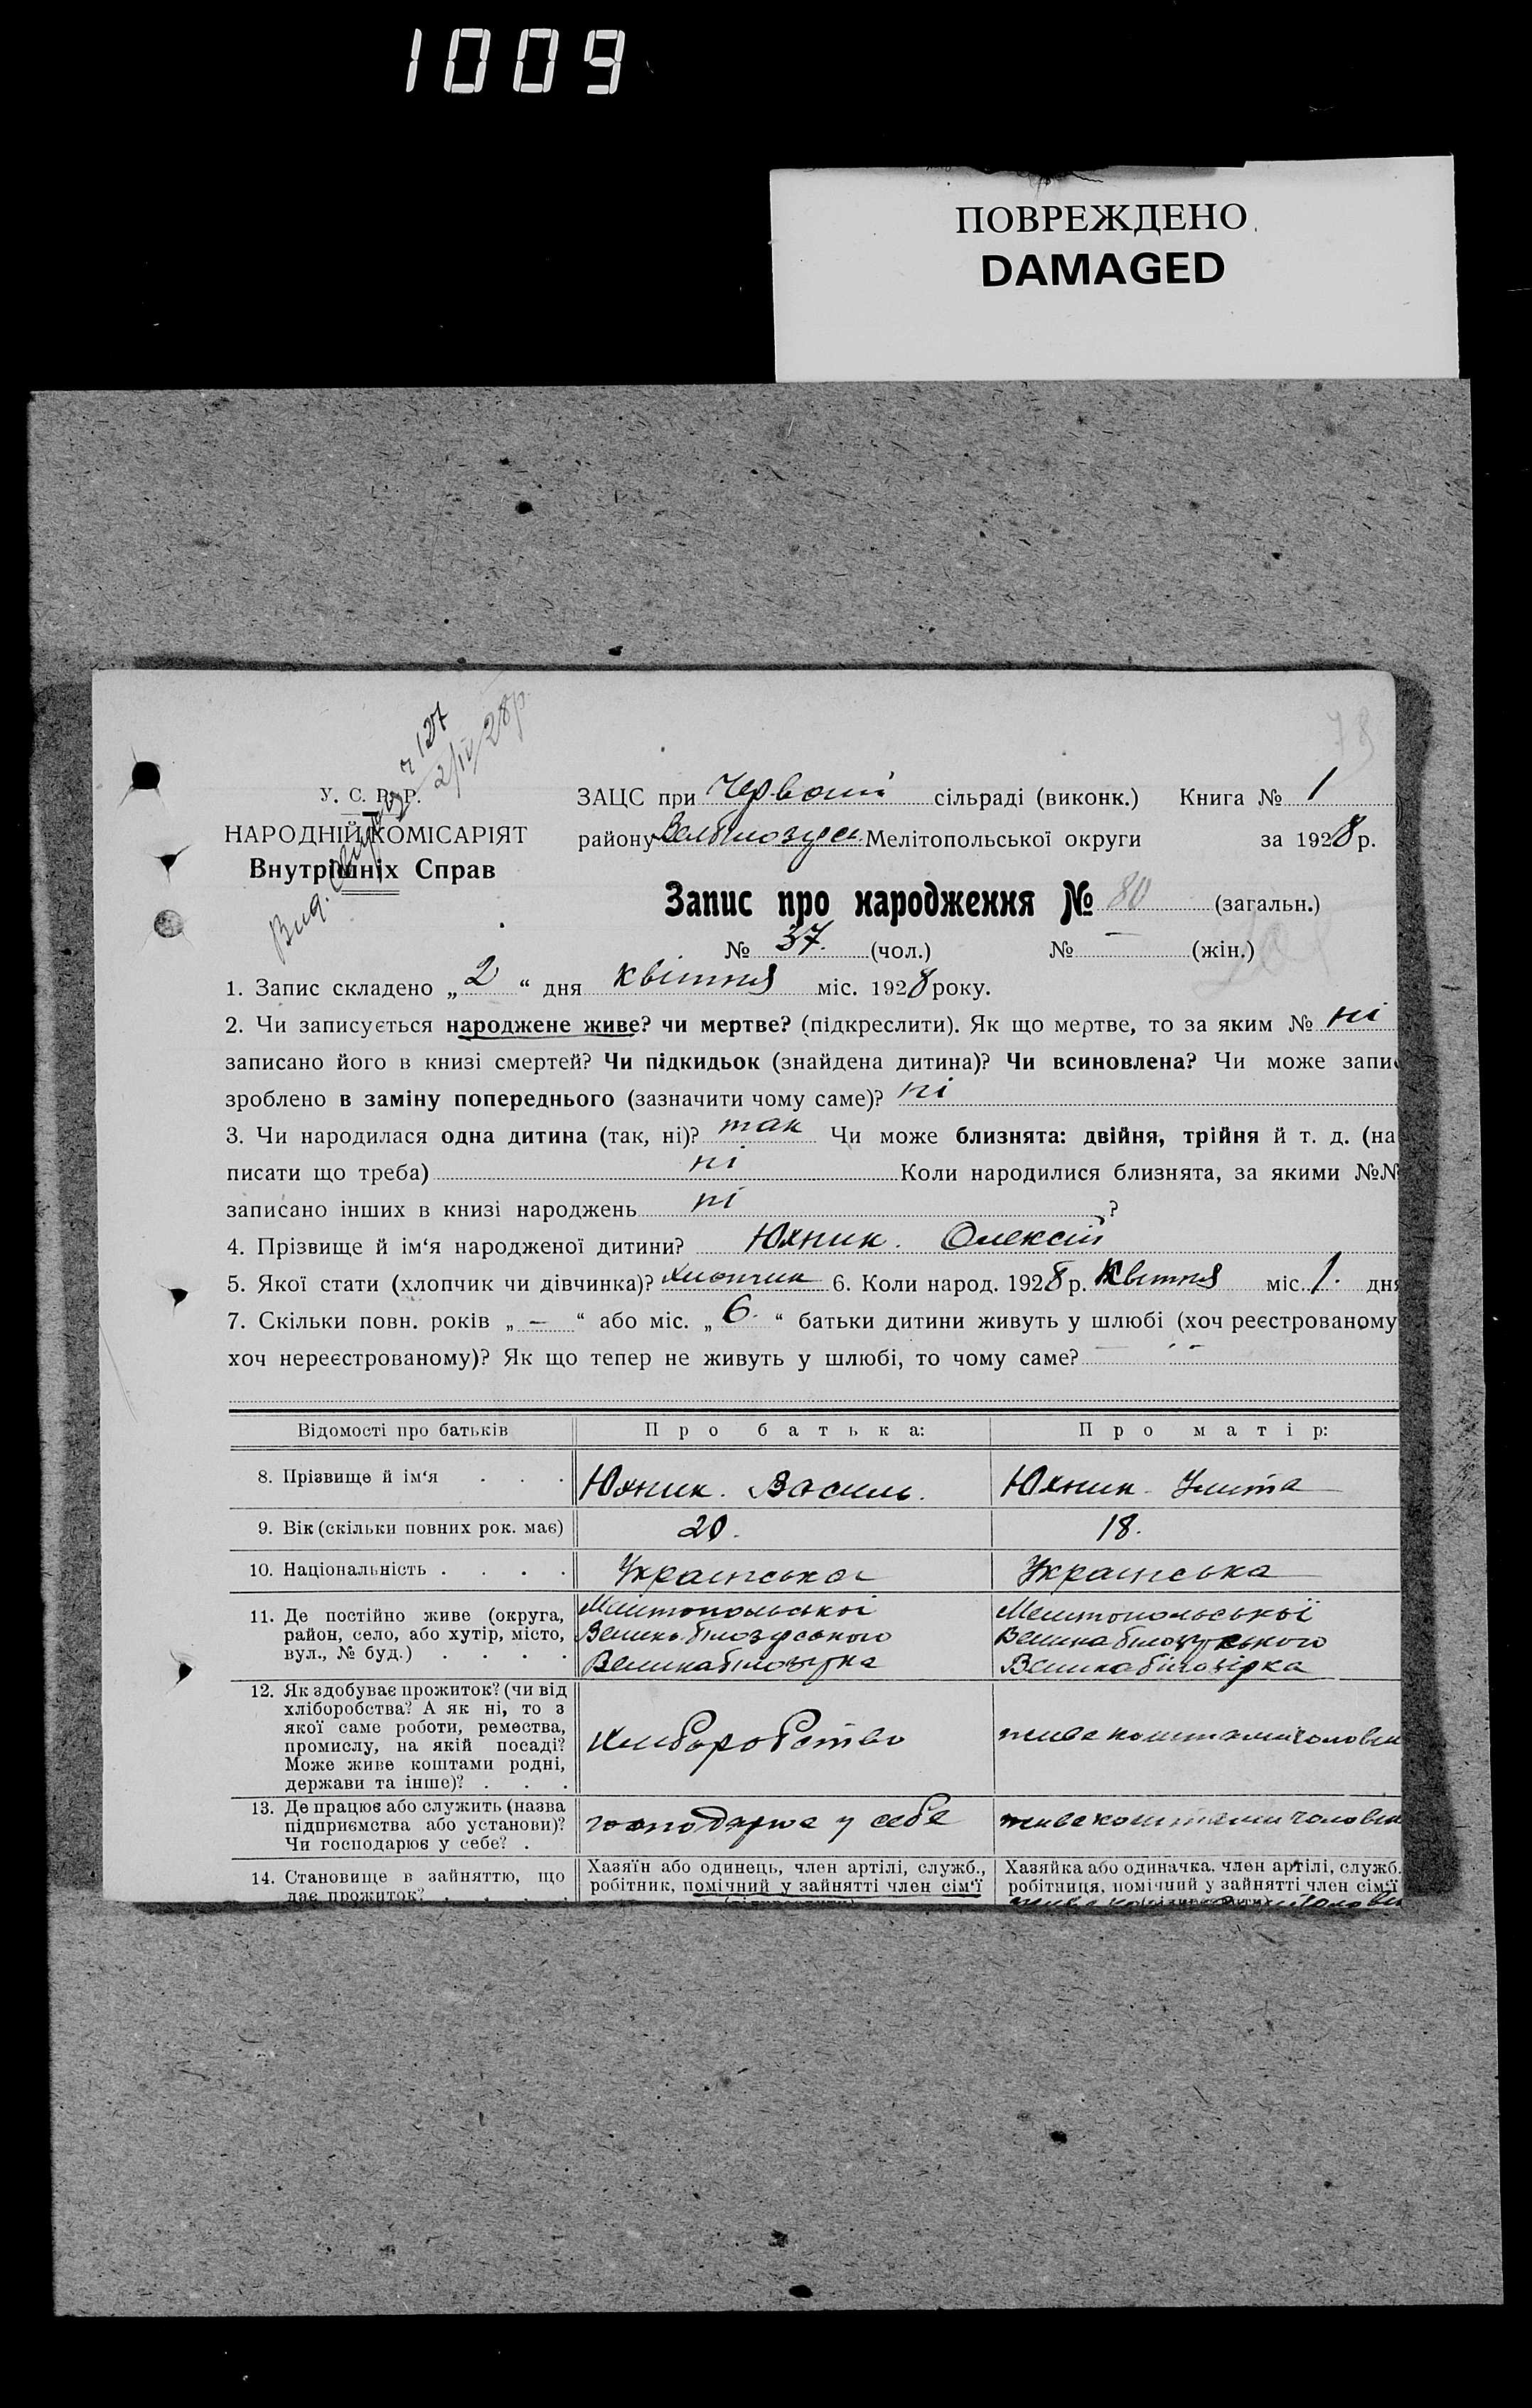 1009
ПОВРЕЖДЕНО
DAMAGED
78
Вид. ч 127
2/IV 28р.
У. С. Р. Р.
НАРОДНІЙ КОМІСАРІЯТ
Внутрішніх Справ
ЗАЦС при Червоній сільраді (виконк.) Книга № 1
району Мелітопольської округи за 1928 р.
Запис про народження № 80 (загальн.)
№ 37. (чол.) № — (жін.)
1. Запис складено „ 2 “ дня квітня міс. 1928 року.
2. Чи записується народжене живе? чи мертве? (підкреслити). Як що мертве, то за яким № ні
записано його в книзі смертей? Чи підкидьок (знайдена дитина)? Чи всиновлена? Чи може запис
зроблено в заміну попереднього (зазначити чому саме)? ні
3. Чи народилася одна дитина (так, ні)? так Чи може близнята: двійня, трійня й т. д. (на
писати що треба) ні Коли народилися близнята, за якими №№
записано інших в книзі народжень ні ?
4. Прізвище й ім‘я народженої дитини? Юхник. Олексій
5. Якої стати (хлопчик чи дівчинка)? хлопчик 6. Коли народ. 1928 р. Квітня міс. 1. дня
7. Скільки повн. років „ — “ або міс. „ 6. “ батьки дитини живуть у шлюбі (хоч реєстрованому
хоч нереєстрованому)? Як що тепер не живуть у шлюбі, то чому саме? —
Відомості про батьків Про батька: Про матір:
8. Прізвище й ім‘я . . . Юхник. Василь. Юхник. Улита
9. Вік (скільки повних рок. має) 20. 18.
10. Національність . . . . Українська Українська
11. Де постійно живе (округа, Мелітопольської Мелітопольської
район, село, або хутір, місто, Великобілозурського Великабілозурського
вул., № буд.) . . . . Великабілозурка Великобілозірка
12. Як здобуває прожиток? (чи від
хліборобства? А як ні, то з
якої саме роботи, ремества,
промислу, на якій посаді? хліборобство живе коштами чоловіка
Може живе коштами родні,
держави та інше)? . . .
13. Де працює або служить (назва
підприємства або установи)? господарює у себе живе коштами чоловіка
Чи господарює у себе? .
14. Становище в зайняттю, що Хазяїн або одинець, член артілі, служб., Хазяйка або одиначка, член артілі, служб.
дає прожиток? . . . . робітник, помічний у зайнятті член сім‘ї робітниця, помічний у зайнятті член сім‘ї
живе коштами чоловіка